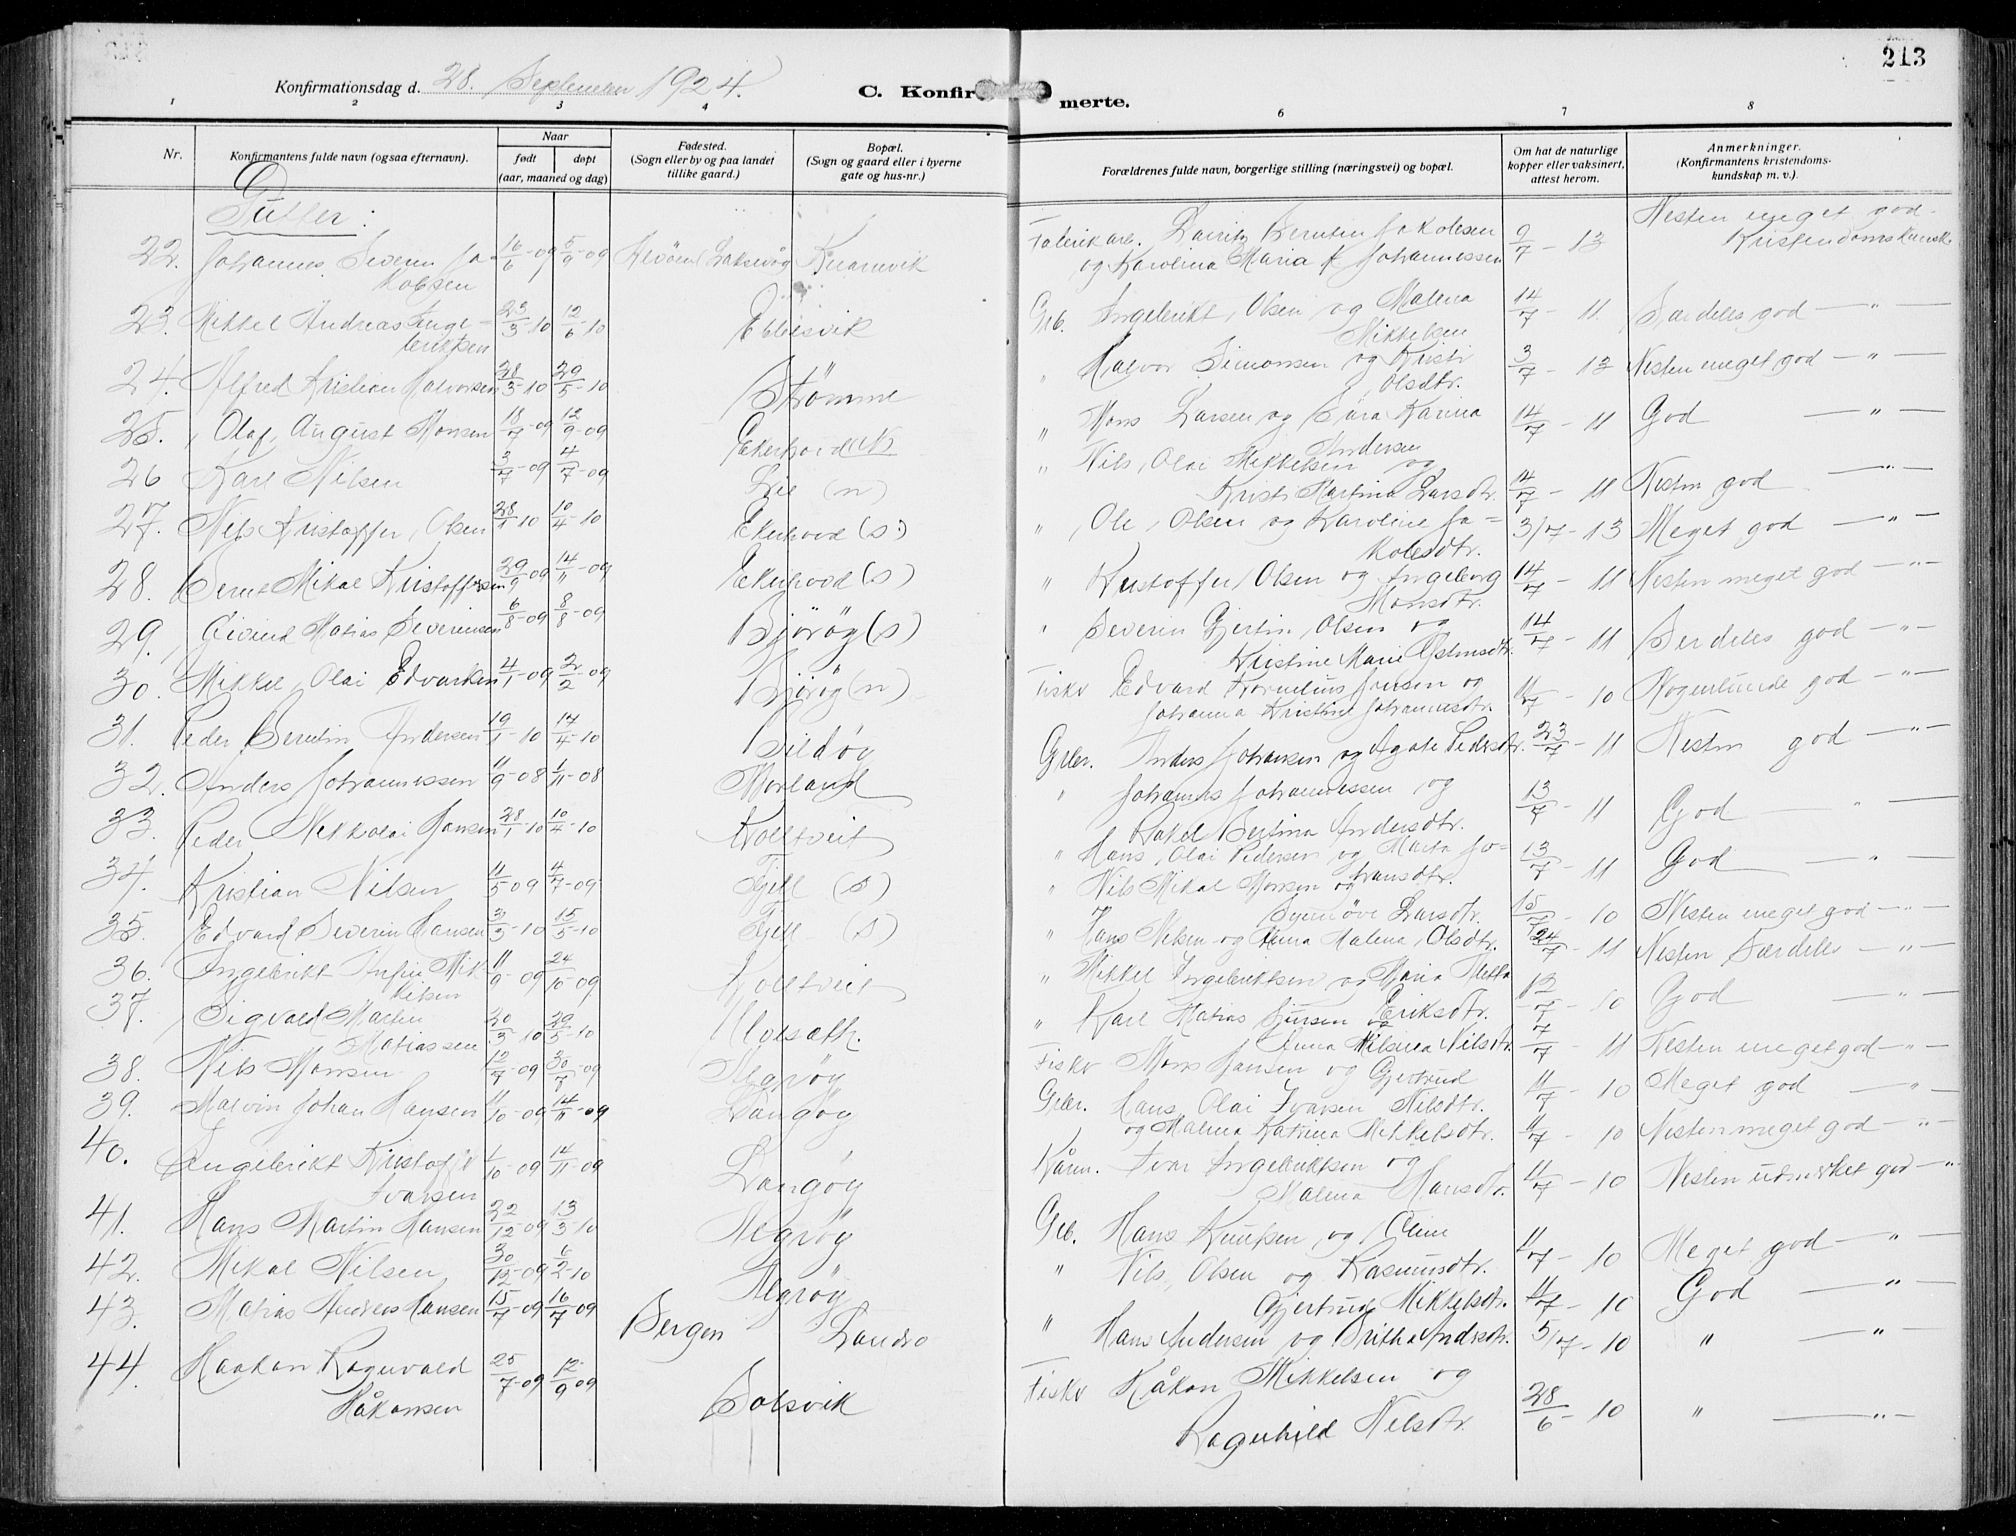 213
Konfirmationsdag d. 28. September 1924.
C. Konfirmerte.
1 2 3 4 6 7 8
Nr.
Konfirmantens fulde navn (ogsaa efternavn).
Naar
født døpt
(aar, maaned og dag)
Fødested.
(Sogn eller by og paa landet
tillike gaard.)
Bopæl.
(Sogn og gaard eller i byerne
gate og hus-nr.)
Forældrenes fulde navn, borgerlige stilling (næringsvei) og bopæl.
Om hat de naturlige
kopper eller vaksinert,
attest herom.
Anmerkninger.
(Konfirmantens kristendoms-
kundskap m. v.)
Gutter:
22. Johannes Severin Ja- 16/6-09 5/9-09 Laksevåg Knarrvik Fabrikarb. Lauritz Berntin Jakobsen 9/7-13 Nesten meget god
kobsen og Karolina Maria f. Johannessen Kristendomskunsk.
23. Mikkel Andreas Inge- 23/3-10 12/6-10 Ebbesvik Grb. Ingebrikt Olsen og Malena 14/7-11 Særdeles god —"—
briktsen Mikkelsen
24. Alfred Kristian Halvorsen 28/3-10 29/5-10 Strømme " Halvor Simonsen og Kristi 3/7-13 Nesten meget god —"—
Olsdtr.
25. Olaf August Monsen 18/7-09 12/9-09 Ekerhovd (N) " Mons Larsen og Sara Karina 14/7-11 God —"—
Andersen
26 Karl Nilsen 3/7-09 4/7-09 Lie (n) " Nils Olai Mikkelsen og
Kristi Martina Larsdtr. 14/7-11 Nesten god —"—
27. Nils Kristoffer Olsen 28/1-10 10/4-10 Ekerhovd (s) " Ole Olsen og Karoline Ja- 3/7-13 Meget god —"—
kobsdtr.
28. Bernt Mikal Kristoffersen 29/9-09 14/11-09 Ekerhovd (s) " Kristoffer Olsen og Ingeborg 14/7-11 Nesten meget god —"—
Monsdtr.
29. Eivind Matias Severinsen 6/8-09 8/8-09 Bjørøy (s) " Severin Gjertin Olsen og 14/7-11 Særdeles god —"—
Kristine Marie
30. Mikkel Olai Edvardsen 4/1-09 2/2-09 Bjørøy (n) Fiskr Edvard Kornelius Jensen og 11/7-10 Nogenlunde god —"—
Johanna Kristine Johannesdtr.
31. Peder Berntin Andersen 19/1-10 17/4-10 Bildøy Grbr. Anders Johansen og Agate Pedersdtr. 23/7-11 Nesten god —"—
32. Anders Johannessen 11/9-08 1/11-08 Morland " Johannes Johannessen og 13/7-11 God —"—
Rakel Bertina Andersdtr.
33. Peder Nikkolai Hansen 28/1-10 10/4-10 Koltveit " Hans Olai Pedersen og Marta Jo- 13/7-11 God —"—
hansdtr.
34. Kristian Nilsen 11/5 09 4/7-09 Fjell (s) " Nils Mikal Monsen og
Synnøve Larsdtr. 15/7-10 Nesten meget god —"—
35. Edvard Severin Hansen 3/3-10 15/5-10 Fjell (s) " Hans Nilsen og Anna Malena Olsdtr. 24/7-11 Nesten Særdeles —"—
36. Ingebrikt Mik- 11/9-09 24/10-09 Koltveit " Mikkel Ingebriktsen og Maria
kelsen Eriksdtr. 12/7-10 God —"—
37. Sigvald Martin 20/3 10 29/5-10 Ulvesæth. " Karl Matias Jensen og
Matiassen Anna Nilsina Nilsdtr. 7/7-11 Nesten meget god —"—
38. Nils Monsen 12/7-09 30/7-09 Algrøy Fiskr Mons Jansen og Gjertrud 11/7-10 Meget god —"—
Nilsdtr.
39. Malvin Johan Hansen 11/10-09 14/11-09 Langøy Grbr. Hans Olai Ivarsen
og Malena Katrina Mikkelsdtr. 11/7-10 Nesten meget god —"—
40. Ingebrikt Kristoffe 1/10-09 14/11-09 Langøy Ivar Ingebriktsen og 11/7-10 Nesten udmerket god —"—
Ivarsen Malena Hansdtr.
41. Hans Martin Hansen 22/12-09 13/3-10 Algrøy Grb. Hans Knutsen og Oline 11/7-10 Meget god —"—
Rasmusdtr.
42. Mikal Nilsen 30/12-09 6/2-10 Algrøy " Nils Olsen og
Gjertrud Mikkelsdtr. 11/7-10 God —"—
43. Matias Andreas Hansen 15/7-09 16/7-09 Bergen Landro " Hans Andersen og Brithe Andersdtr. 5/7-10 " —"—
44. Haakon Ragnvald 25/7-09 12/9 09 Solsvik Fiskr Håkon Mikkelsen og
Håkonsen Ragnhild Nilsdtr. 28/6-10 " —"—